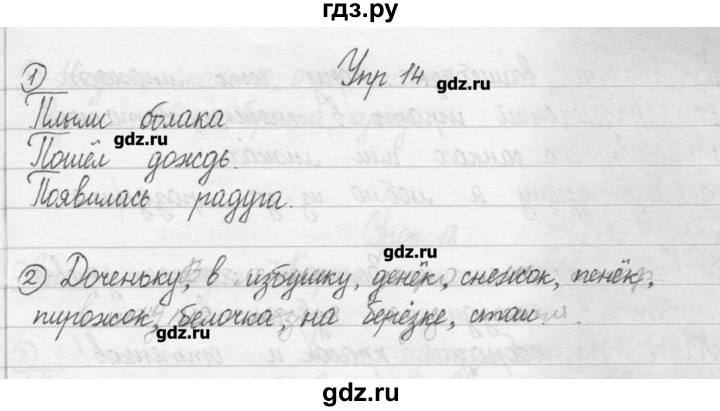 гдз.ру
1) Упр 14. gdz.ru
Плыли облака.
gdz.ru
Пошёл дождь.
Появилась радуга.
gdz.ru
2) Доченьку, в избушку, денёк, снежок, пенёк,
пирожок, белочка, на берёзке, стаи.
gdz.ru
gdz.ru